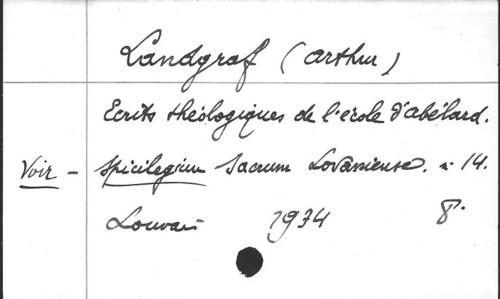 Landgraf (Arthur)
Ecrits théologiques de l'école d'Abélard.
Voir - Spicilegium Sacrum Lovaniense. n. 14.
Louvain 1934 8°.